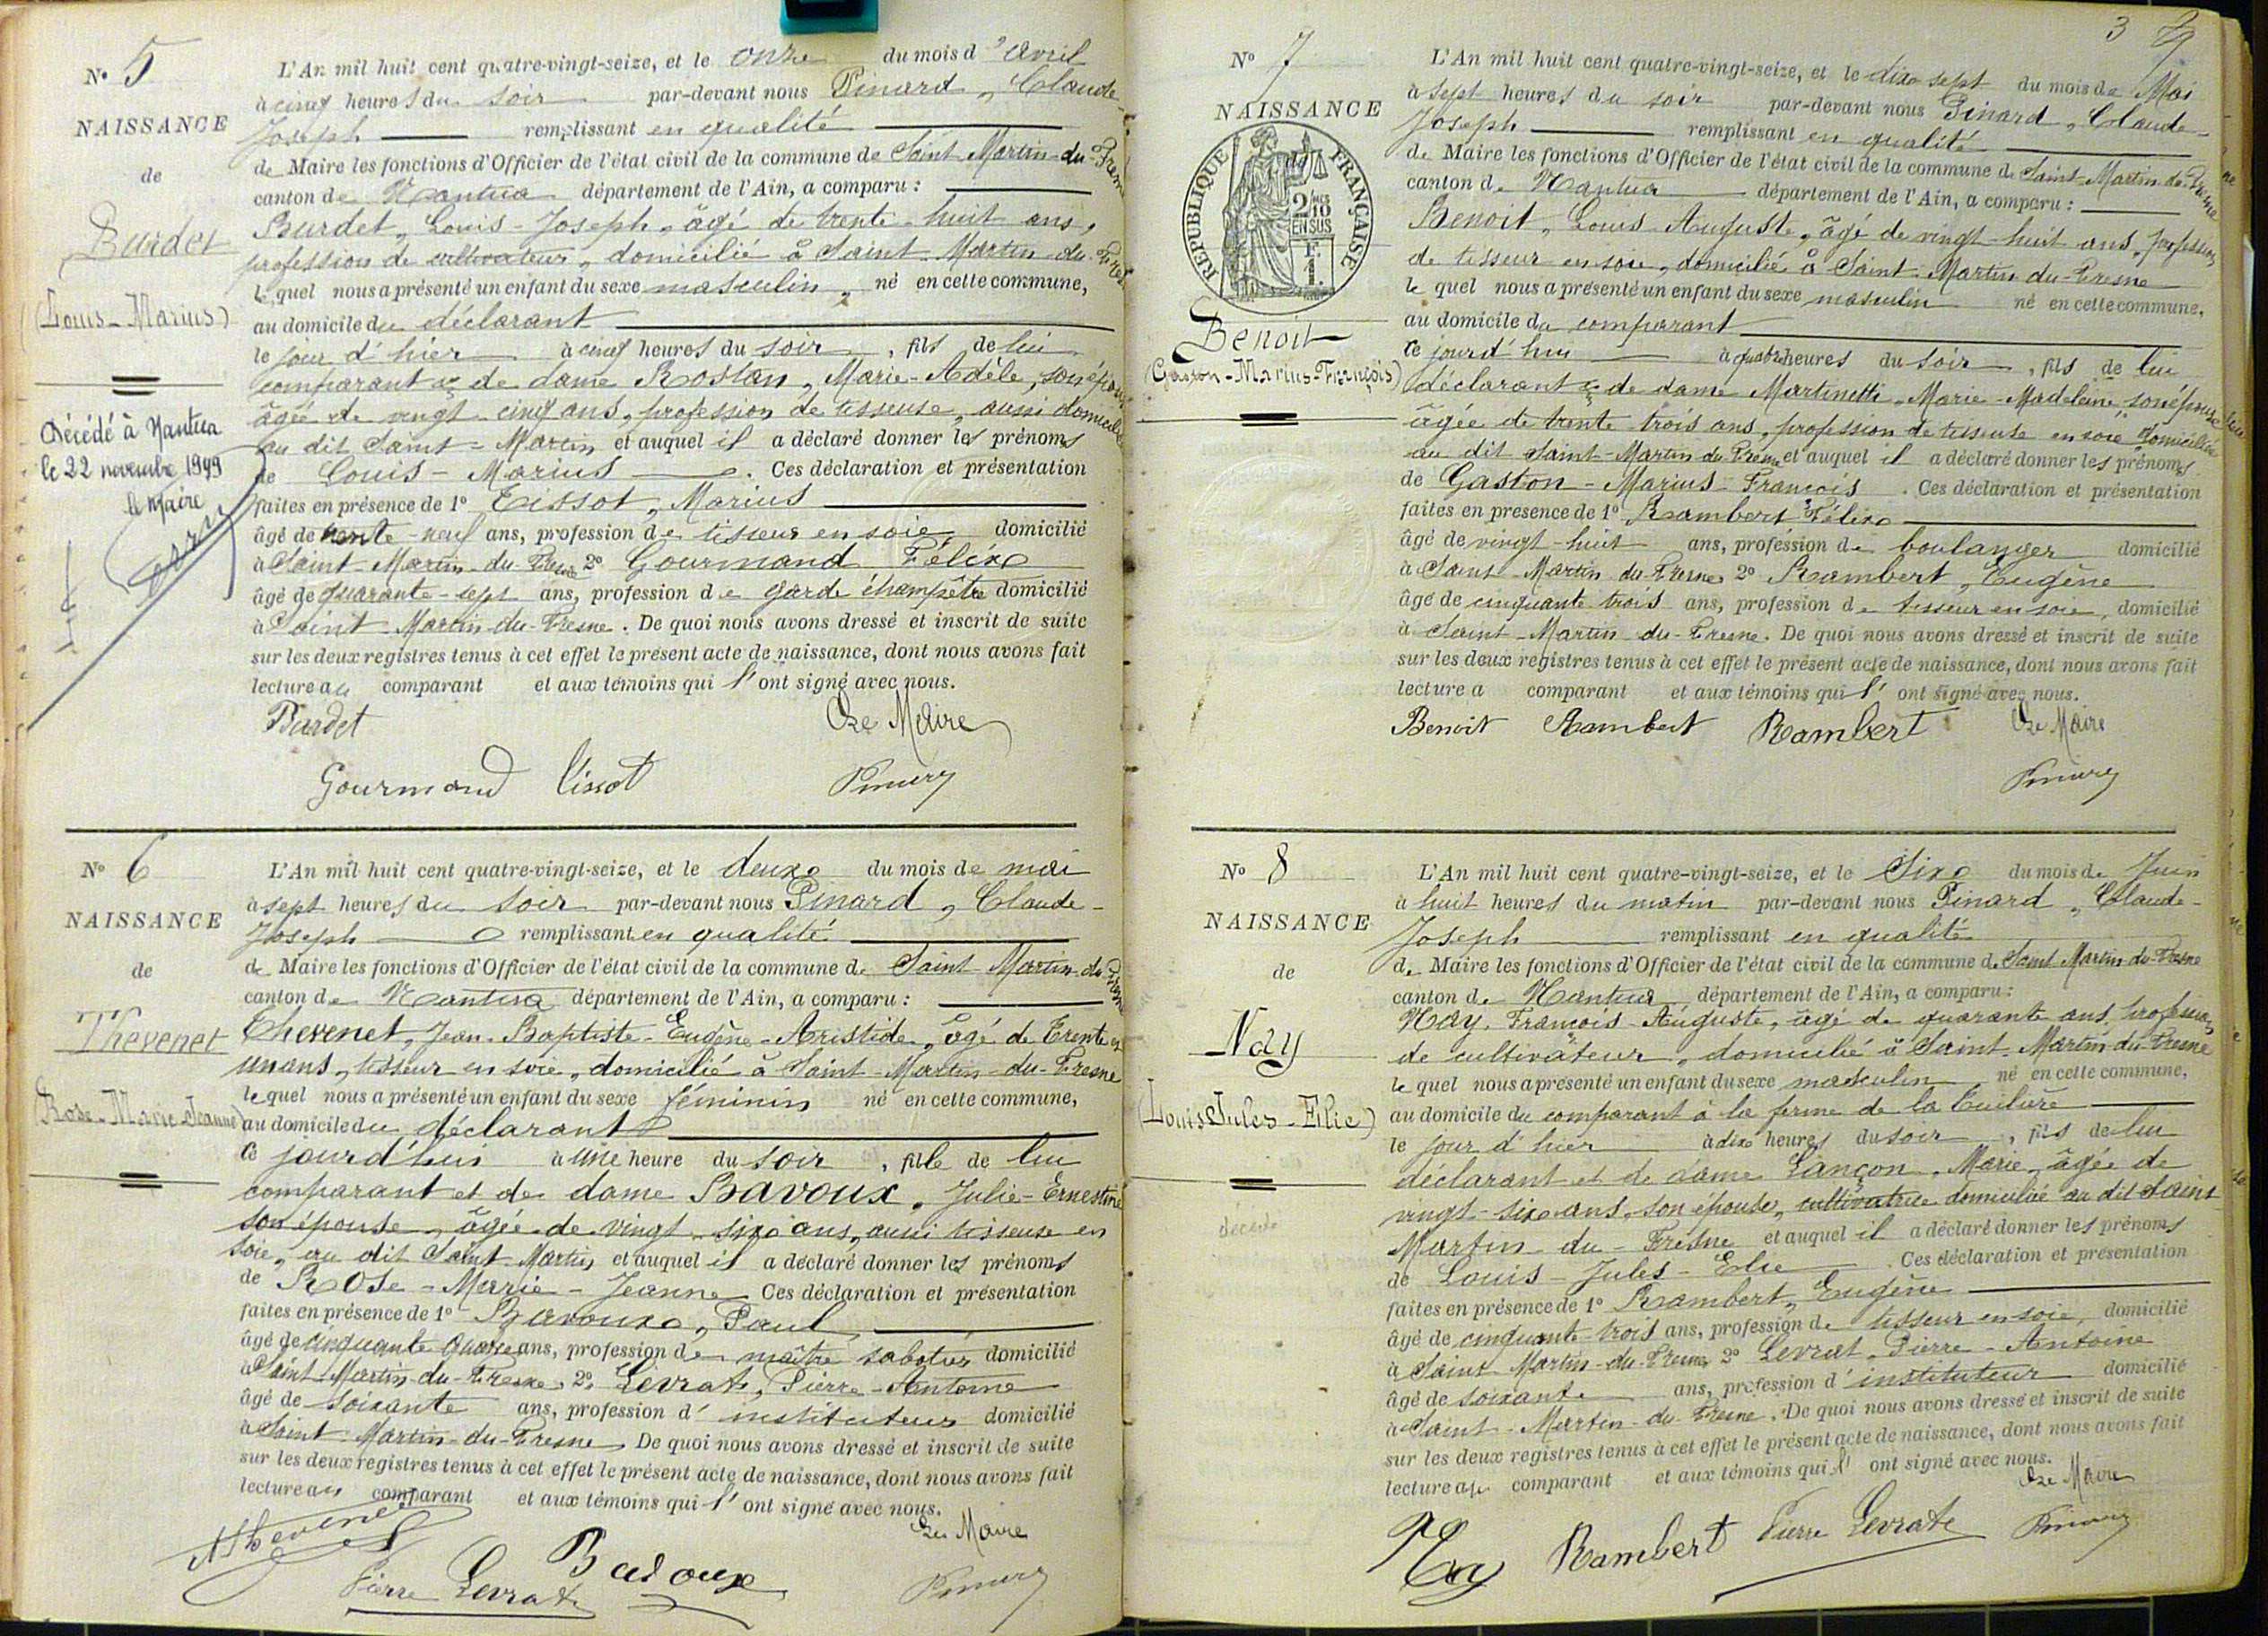 N° 5
NAISSANCE
de
Burdet
(Louis-Marius)
Décédé à Nantua
le 22 novembre 1949
le Maire
L'An mil huit cent quatre-vingt-seize, et le onze du mois d'avril
à cinq heures du soir par-devant nous Pinard, Claude-
Joseph remplissant en qualité
de Maire les fonctions d'Officier de l'état civil de la commune de Saint-Martin-du-Fresne
canton de Nantua département de l'Ain, a comparu :
Burdet, Louis-Joseph, âgé de trente-huit ans,
profession de cultivateur, domicilié à Saint-Martin-du-Fresne
lequel nous a présenté un enfant du sexe masculin, né en cette commune,
au domicile du déclarant
le jour d'hier à cinq heures du soir, fils de lui
comparant et de dame Roslan, Marie-Adèle, son épouse
âgée de vingt-cinq ans, profession de tisseuse, aussi domiciliée
au dit Saint-Martin et auquel il a déclaré donner les prénoms
de Louis-Marius. Ces déclaration et présentation
faites en présence de 1° Tissot, Marius
âgé de trente-neuf ans, profession de tisseur en soie, domicilié
à Saint-Martin-du-Fresne 2° Gourmand Félix
âgé de quarante-sept ans, profession de garde champêtre domicilié
à Saint-Martin-du-Fresne. De quoi nous avons dressé et inscrit de suite
sur les deux registres tenus à cet effet le présent acte de naissance, dont nous avons fait
lecture au comparant et aux témoins qui l'ont signé avec nous.
Burdet Le Maire
Gourmand Tissot
N° 6
NAISSANCE
de
Thévenet
(Rose-Marie-Jeanne)
L'An mil huit cent quatre-vingt-seize, et le deux du mois de mai
à sept heures du soir par-devant nous Pinard, Claude-
Joseph remplissant en qualité
de Maire les fonctions d'Officier de l'état civil de la commune de Saint-Martin-du-Fresne
canton de Nantua département de l'Ain, a comparu :
Thévenet, Jean-Baptiste-Eugène-Aristide, âgé de trente et
un ans, tisseur en soie, domicilié à Saint-Martin-du-Fresne
lequel nous a présenté un enfant du sexe féminin né en cette commune,
au domicile du déclarant
ce jourd'hui à une heure du soir, fille de lui
comparant et de dame Bavoux, Julie-Ernestine
son épouse, âgée de vingt-six ans, aussi tisseuse en
soie, au dit Saint-Martin et auquel il a déclaré donner les prénoms
de Rose-Marie-Jeanne Ces déclaration et présentation
faites en présence de 1° Bavoux, Paul
âgé de cinquante quatre ans, profession de maître sabotier domicilié
à Saint-Martin-du-Fresne, 2° Levrat, Pierre-Antoine
âgé de soixante ans, profession d'instituteur domicilié
à Saint-Martin-du-Fresne De quoi nous avons dressé et inscrit de suite
sur les deux registres tenus à cet effet le présent acte de naissance, dont nous avons fait
lecture au comparant et aux témoins qui l'ont signé avec nous.
Thévenet Le Maire
Pierre Levrat Bavoux
3
N° 7
NAISSANCE
RÉPUBLIQUE FRANÇAISE
2/10 MES
EN SUS
F.
1.
Benoit
(Gaston-Marius-François)
L'An mil huit cent quatre-vingt-seize, et le dix sept du mois de Mai
à sept heures du soir par-devant nous Pinard, Claude-
Joseph remplissant en qualité
de Maire les fonctions d'Officier de l'état civil de la commune de Saint-Martin-du-Fresne
canton de Nantua département de l'Ain, a comparu :
Benoit, Louis-Auguste, âgé de vingt-huit ans, profession
de tisseur en soie, domicilié à Saint-Martin-du-Fresne
lequel nous a présenté un enfant du sexe masculin né en cette commune,
au domicile du comparant
ce jourd'hui à quatre heures du soir, fils de lui
déclarant et de dame Martinetti, Marie-Madeleine, son épouse
âgée de trente-trois ans, profession de tisseuse en soie, domiciliée
au dit Saint-Martin du Fresne et auquel il a déclaré donner les prénoms
de Gaston-Marius-François. Ces déclaration et présentation
faites en présence de 1° Rambert Félix
âgé de vingt-huit ans, profession de boulanger domicilié
à Saint-Martin-du-Fresne 2° Rambert, Eugène
âgé de cinquante trois ans, profession de tisseur en soie, domicilié
à Saint-Martin-du-Fresne. De quoi nous avons dressé et inscrit de suite
sur les deux registres tenus à cet effet le présent acte de naissance, dont nous avons fait
lecture a comparant et aux témoins qui l'ont signé avec nous.
Benoit Rambert Rambert Le Maire
N° 8
NAISSANCE
de
Nay
(Louis-Jules-Elie)
décédé
L'An mil huit cent quatre-vingt-seize, et le Six du mois de Juin
à huit heures du matin par-devant nous Pinard, Claude-
Joseph remplissant en qualité
de Maire les fonctions d'Officier de l'état civil de la commune de Saint-Martin-du-Fresne
canton de Nantua département de l'Ain, a comparu :
Nay, François-Auguste, âgé de quarante ans, profession
de cultivateur, domicilié à Saint-Martin-du-Fresne
lequel nous a présenté un enfant du sexe masculin né en cette commune,
au domicile du comparant à la ferme de la
le jour d'hier à dix heures du soir, fils de lui
déclarant et de dame Lançon, Marie, âgée de
vingt-six ans, son épouse, cultivatrice domiciliée au dit Saint-
Martin-du-Fresne et auquel il a déclaré donner les prénoms
de Louis-Jules-Elie Ces déclaration et présentation
faites en présence de 1° Rambert, Eugène
âgé de cinquante-trois ans, profession de tisseur en soie, domicilié
à Saint-Martin-du-Fresne 2° Levrat, Pierre-Antoine
âgé de soixante ans, profession d'instituteur domicilié
à Saint-Martin-du-Fresne. De quoi nous avons dressé et inscrit de suite
sur les deux registres tenus à cet effet le présent acte de naissance, dont nous avons fait
lecture au comparant et aux témoins qui l'ont signé avec nous.
Le Maire
Nay Rambert Pierre Levrat